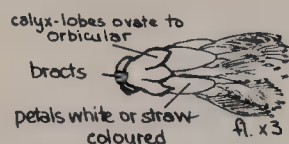 calyx-lobes ovate to
orbicular
bracts
petals white or straw-
coloured
fl. x3